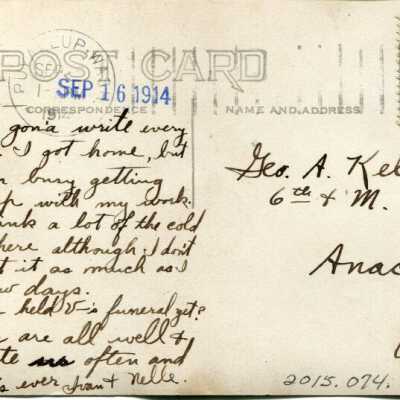 POST CARD
PUYALLUP, WASH
SEP
1914
SEP 16 1914
CORRESPONDENCE
NAME AND ADDRESS
gona write every
I got home, but
busy getting
up with my work.
a lot of the cold
here although I don't
it as much as I
days.
held V-'s funeral yet?
are all well &
us often and
ever Ivan & Nelle.
Geo. A. Kel
6th & M.
Anac
2015.074.